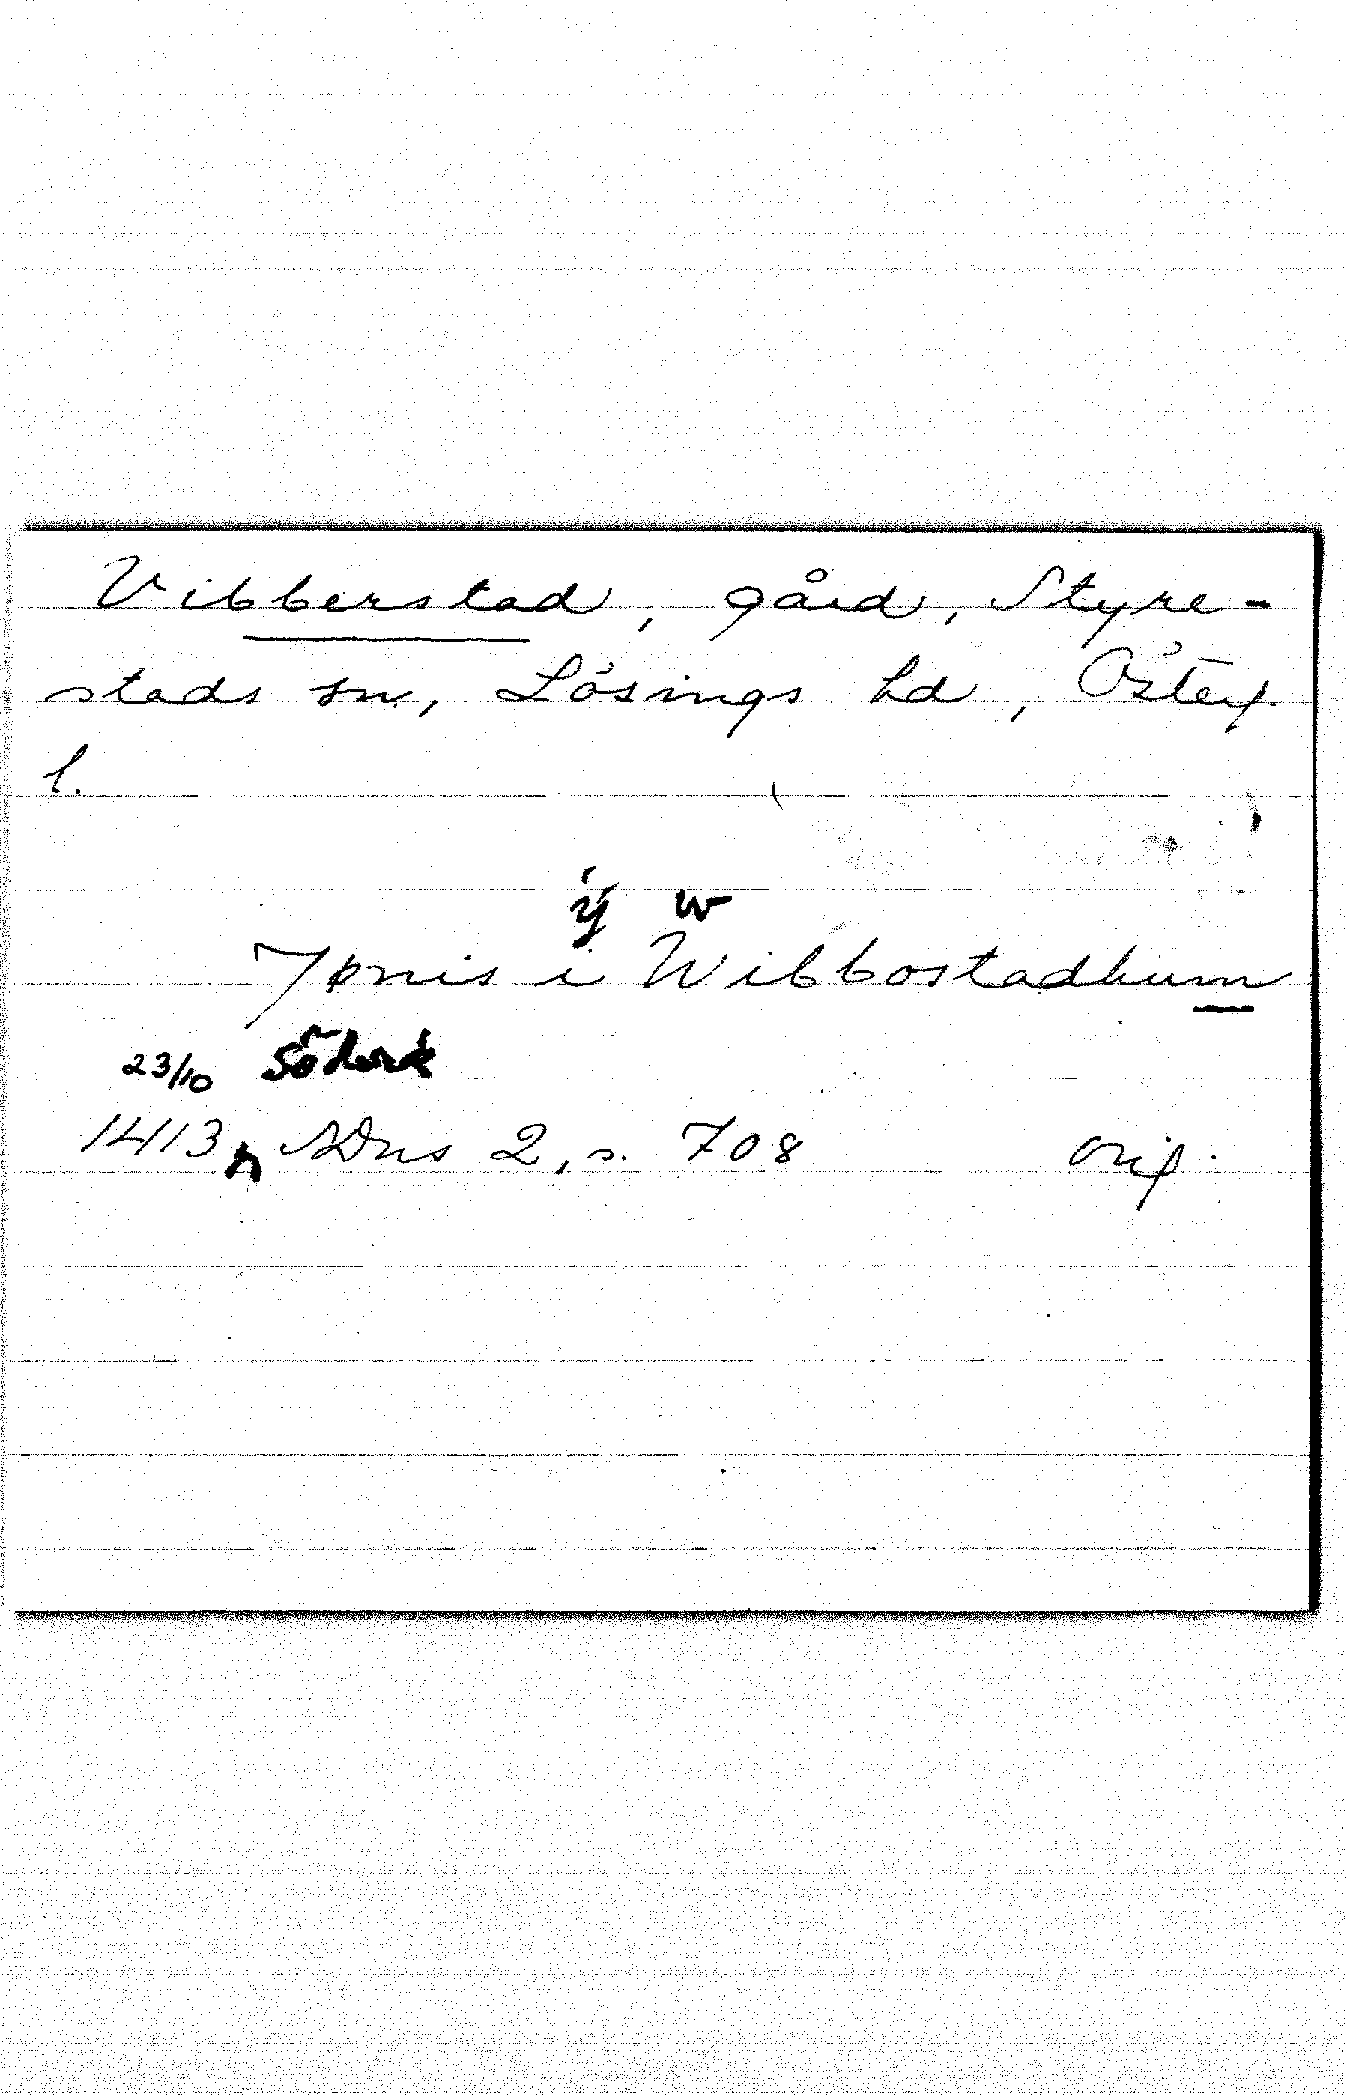 Vibberstad, gård, Styre-
stads sn, Lösings hd, Österg.
l.
ÿ w
Jønis i Wibbostadhum
23/10 Söderk
1413, SDns 2, s. 708 orig.